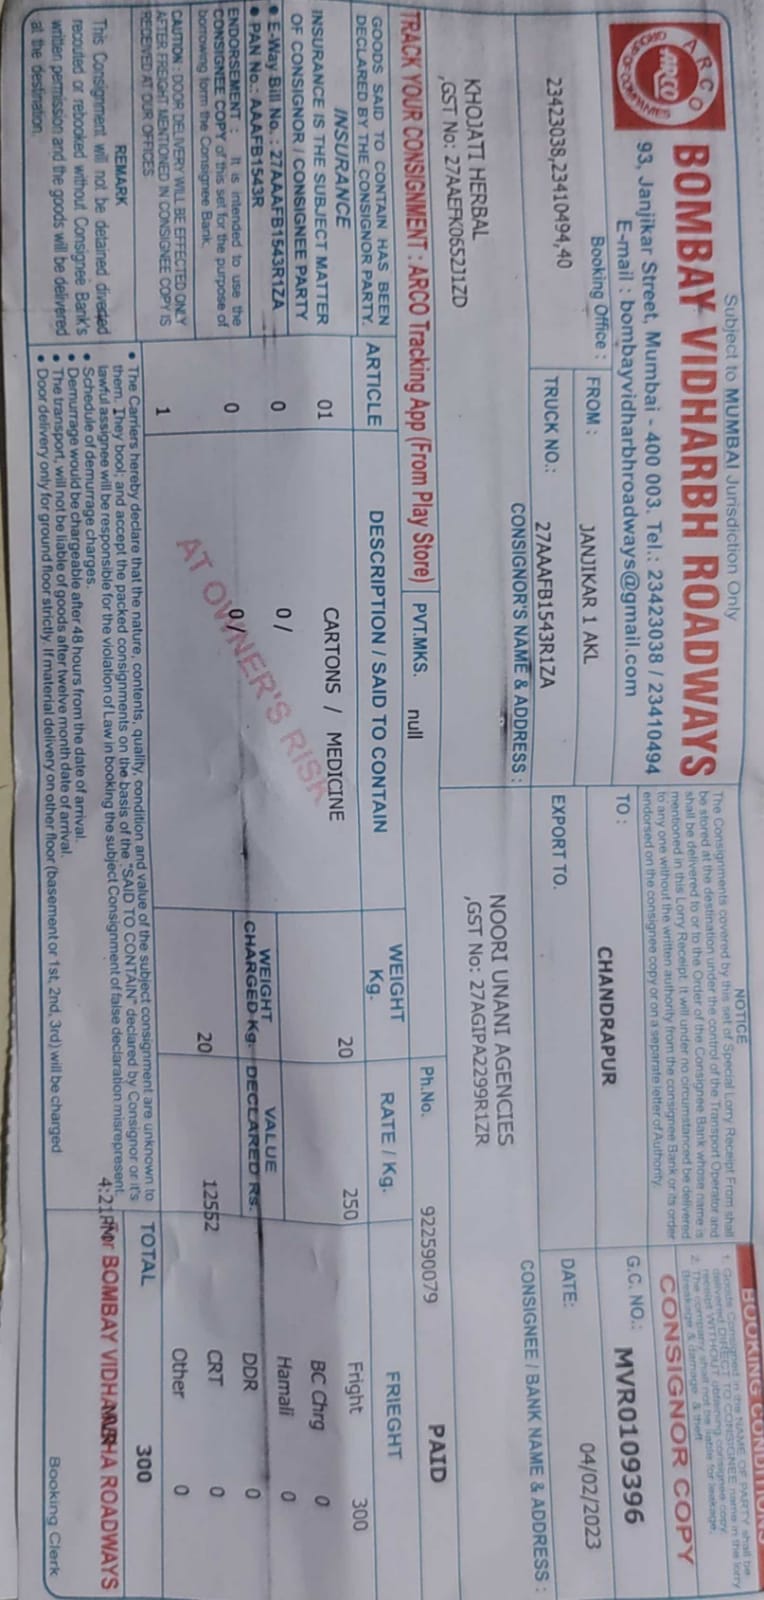 Subject to MUMBAI Jurisdiction Only
ARCO
ARCO
GROUP OF COMPANIES
BOMBAY VIDHARBH ROADWAYS
93, Janjikar Street, Mumbai - 400 003. Tel.: 23423038 / 23410494
E-mail : bombayvidharbhroadways@gmail.com
NOTICE
The Consignments covered by this set of Special Lorry Receipt From shall
be stored at the destination under the control of the Transport Operator and
shall be delivered to or to the Order of the Consignee Bank whose name is
mentioned in this Lorry Receipt. It will under no circumstanced be delivered
to any one without the written authority from the consignee Bank or its order
endorsed on the consignee copy or on a separate letter of Authority.
BOOKING CONDITIONS
1. Goods Consigned in the NAME OF PARTY shall be
delivered DIRECT TO CONSIGNEE name in the lorry
receipt WITHOUT obtaining consignee copy.
2. The company shall not be liable for leakage,
Breakage & damage & theft
CONSIGNOR COPY
Booking Office :
23423038,23410494,40
FROM :
JANJIKAR 1 AKL
TO :
CHANDRAPUR
G.C. NO.: MVR0109396
TRUCK NO.:
27AAAFB1543R1ZA
EXPORT TO.
DATE:
04/02/2023
CONSIGNOR'S NAME & ADDRESS :
KHOJATI HERBAL
,GST No: 27AAEFK0652J1ZD
CONSIGNEE / BANK NAME & ADDRESS :
NOORI UNANI AGENCIES
,GST No: 27AGIPA2299R1ZR
TRACK YOUR CONSIGNMENT : ARCO Tracking App (From Play Store)
PVT.MKS. null
Ph.No. 922590079
PAID
GOODS SAID TO CONTAIN HAS BEEN
DECLARED BY THE CONSIGNOR PARTY.
INSURANCE
INSURANCE IS THE SUBJECT MATTER
OF CONSIGNOR / CONSIGNEE PARTY
• E-Way Bill No. : 27AAAFB1543R1ZA
• PAN No.: AAAFB1543R
ENDORSEMENT : It is intended to use the
CONSIGNEE COPY of this set for the purpose of
borrowing form the Consignee Bank.
CAUTION : DOOR DELIVERY WILL BE EFFECTED ONLY
AFTER FREIGHT MENTIONED IN CONSIGNEE COPY IS
RECEIVED AT OUR OFFICES
ARTICLE DESCRIPTION / SAID TO CONTAIN WEIGHT Kg. RATE / Kg. FRIEGHT
01 CARTONS / MEDICINE 20 250 Fright 300
BC Chrg 0
0 0 / Hamali 0
WEIGHT CHARGED Kg. VALUE DECLARED Rs.
0 0 / DDR 0
20 12552 CRT 0
1 Other 0
AT OWNER'S RISK
TOTAL 300
REMARK
This Consignment will not be detained diverted
recouted or rebooked without Consignee Bank's
written permission and the goods will be delivered
at the destination.
• The Carriers hereby declare that the nature, contents, quality, condition and value of the subject consignment are unknown to
them. They bool; and accept the packed consignments on the basis of the "SAID TO CONTAIN" declared by Consignor or it's
lawful assignee will be responsible for the violation of Law in booking the subject Consignment of false declaration misrepresent.
• Schedule of demurrage charges.
• Demurrage would be chargeable after 48 hours from the date of arrival.
• The transport, will not be liable of goods after twelve month date of arrival.
• Door delivery only for ground floor strictly. If material delivery on other floor (basement or 1st, 2nd, 3rd) will be charged
4:21PM
For BOMBAY VIDHARBHA ROADWAYS
Booking Clerk